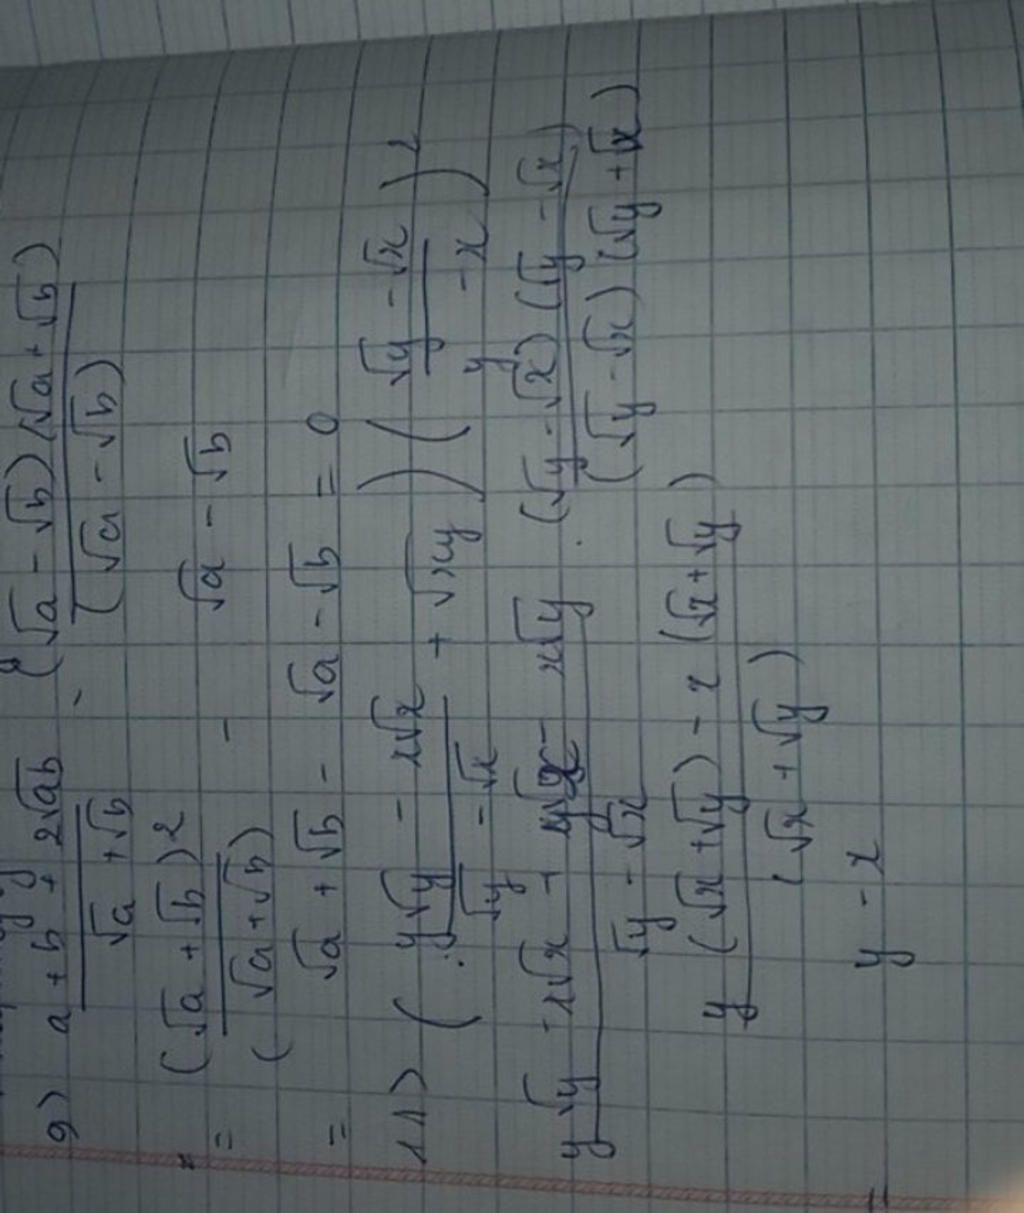 9) (a + b + 2√ab)/(√a + √b) - ((√a - √b)(√a + √b))/(√a - √b)
= (√a + √b)²/(√a + √b) - √a - √b
= √a + √b - √a - √b = 0
11) ((y√y - x√x)/(√y - √x) + √xy) ((√y - √x)/(y - x))²
(y√y - x√x + y√x - x√y)/(√y - √x) · ((√y - √x)(√y - √x))/((√y - √x)(√y + √x))
(y(√x + √y) - x(√x + √y))/(√x + √y)
= y - x